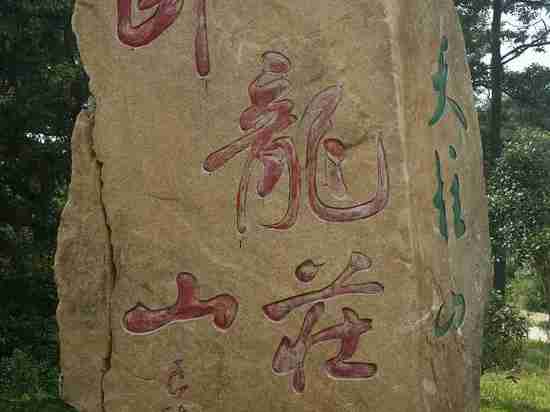 卧龍
山莊
天柱山